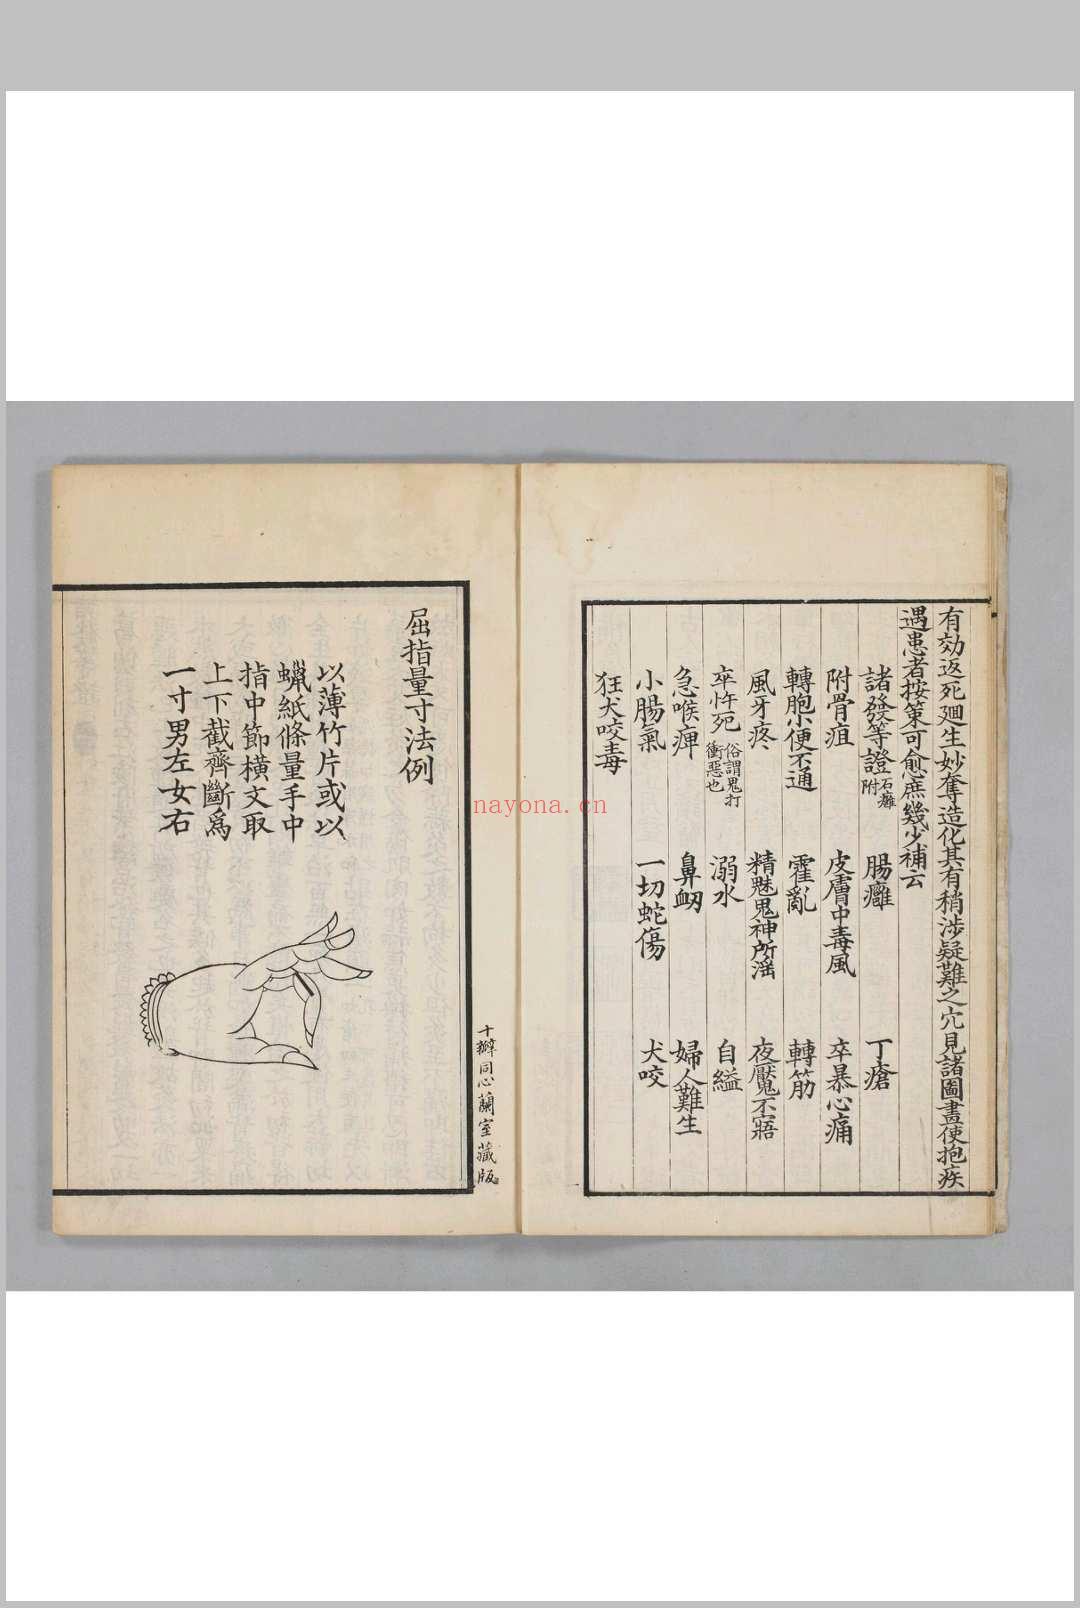 有効返死廻生妙奪造化其有稍涉疑難之穴見諸圖畫使抱疾
遇患者按策可愈庶幾少補云
諸發等證 石癰附 腸癰 丁瘡
附骨疽 皮膚中毒風 卒暴心痛
轉胞小便不通 霍亂 轉筋
風牙疼 精魅鬼神所滛 夜魘不寤
卒忤死 俗謂鬼打衝惡也 溺水 自縊
急喉痺 鼻衂 婦人難生
小腸氣 一切蛇傷 犬咬
狂犬咬毒
十瓣同心蘭室藏版
屈指量寸法例
以薄竹片或以
蠟紙條量手中
指中節橫文取
上下截齊斷爲
一寸男左女右
nayona.cn